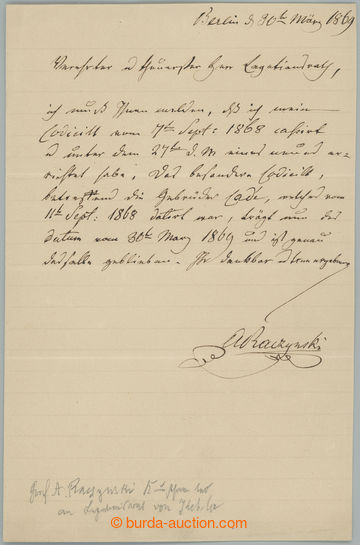 Berlin d 30ten März 1869
Verehrter u theuerster Herr Legationsrath,
ich muß Ihnen melden, daß ich mein
Codicill vom 7ten Sept: 1868 cassirt
u unter dem 27ten d. M. eines neues er-
richtet habe. Das besondere Codicill,
betreffend die Gebrüder Cade, welches vom
11ten Sept: 1868 datirt war, trägt nun das
Datum vom 30ten März 1869 und ist genau
dasselbe geblieben. Ihr dankbar
ARaczynski
Graf A. Raczynski
an Legationsrat von
© burda-auction.com